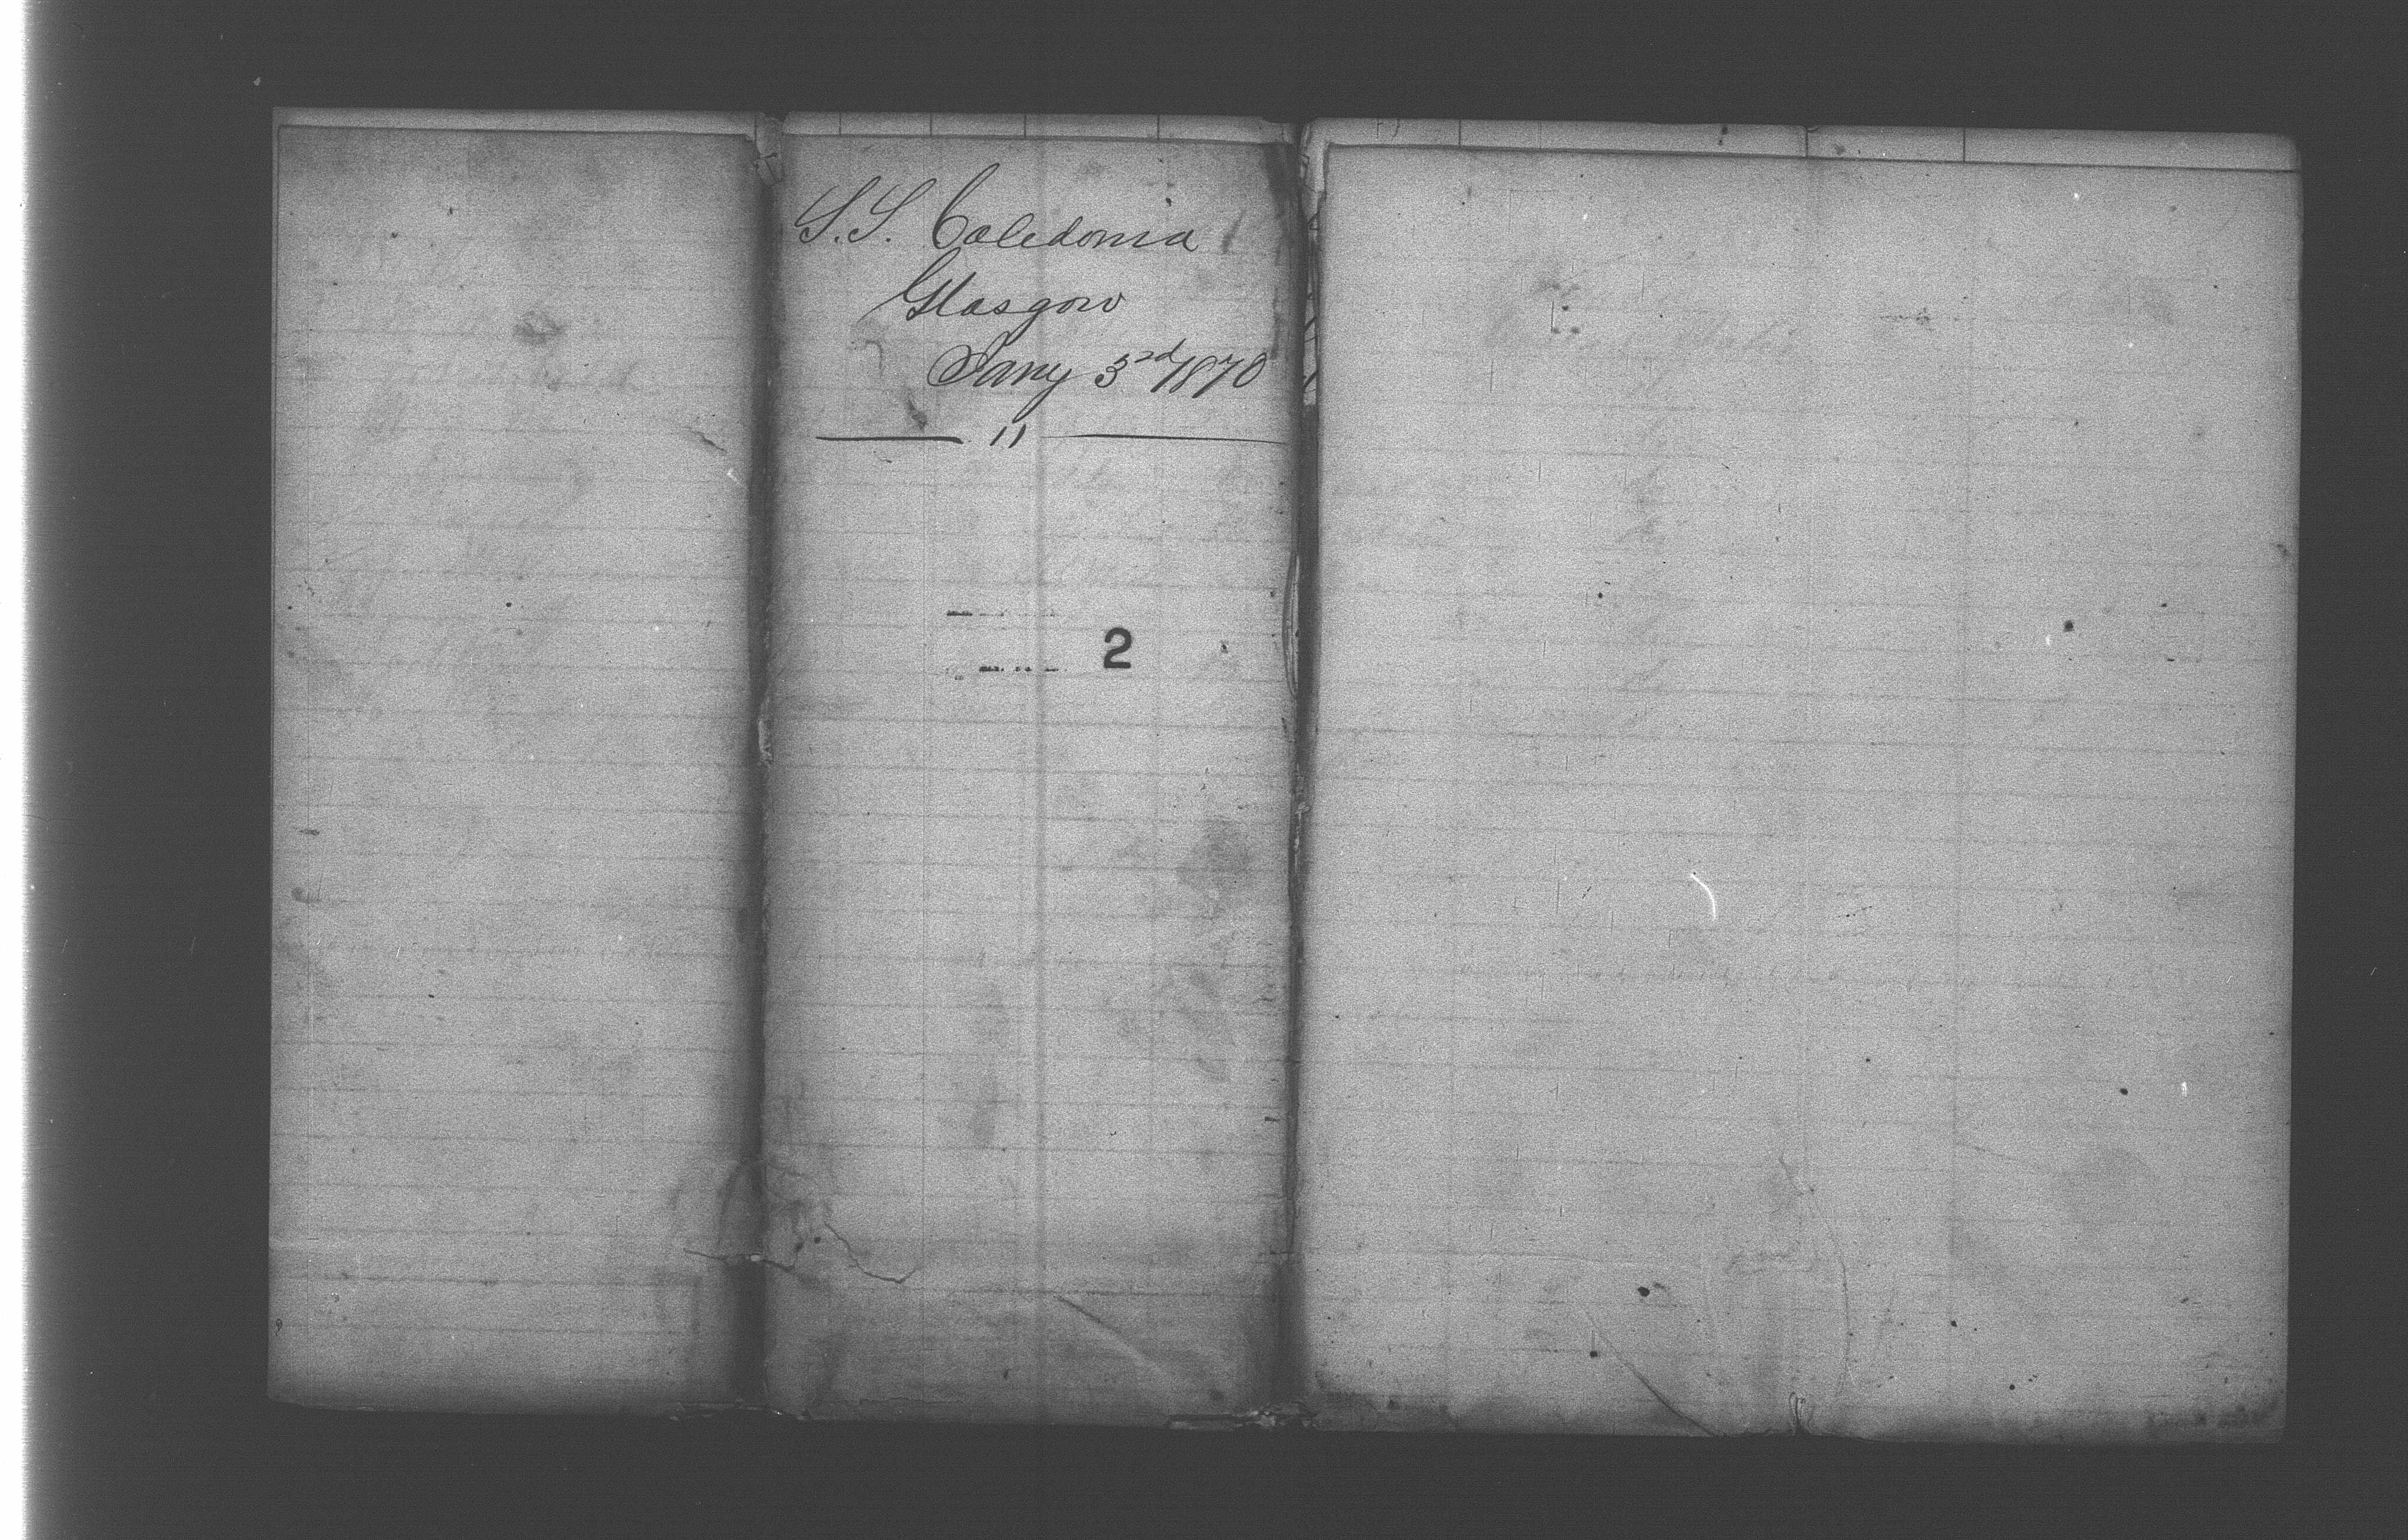 S.S. Caledonia
Glasgow
Jany 3rd 1870
11
2